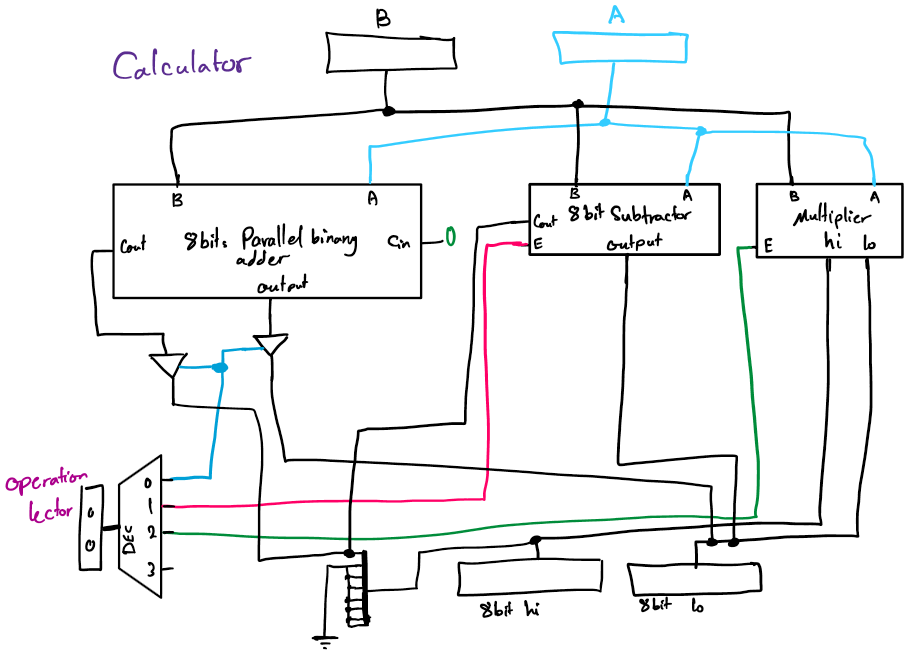 B
A
Calculator
B
A
8bits Parallel binany
adder
Cout
Cin
0
output
B
A
8bit Subtractor
Cout
E
output
B
A
Multiplier
E
hi
lo
operation
lector
0
0
DEC
0
1
2
3
8bit hi
8bit lo